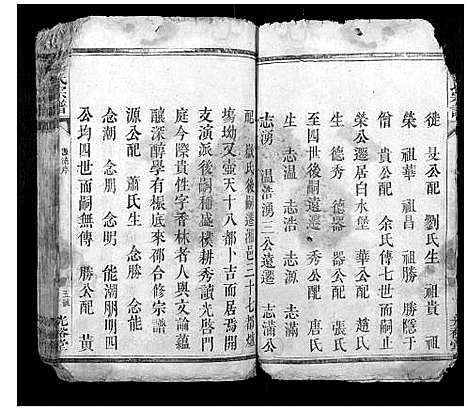 徙 㕝公配 劉氏生 祖貴 祖
榮 祖華 祖昌 祖勝 勝隱于
僧 貴公配 余氏傳七世而嗣止
榮公遷居白水堡 華公配 趙氏
生 德秀 德器 器公配 張氏
至四世後嗣遠遷 秀公配 唐氏
生 志溫 志浩 志源 志滿
志湧 溫浩湧三公遠遷 志滿公
配 氏後嗣遠遷湘邑三十七都
塲坳又壺天十八都卜吉而居焉開
支演派後嗣稀盛樸耕秀讀光啓門
庭今際貴性字香林者人與文論蘊
釀深醇學有根底來邵合修宗譜
源公配 蕭氏生 念勝 念能
念潮 念朋 念明 能潮朋明四
公均四世而嗣無傳 勝公配 黃
氏宗譜